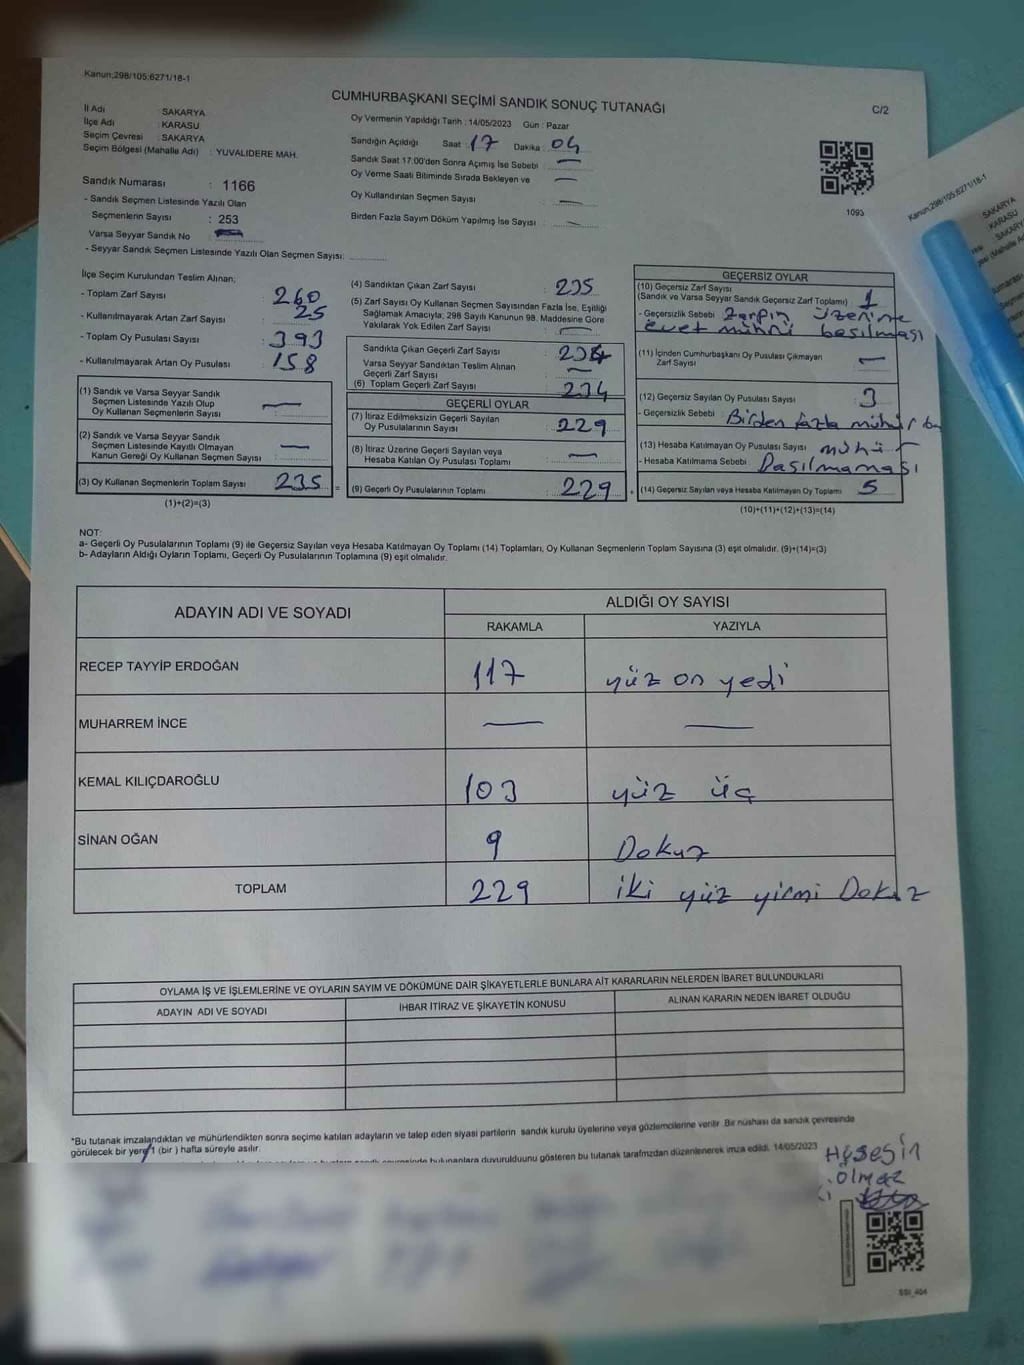 Kanun;298/105;6271/18-1
CUMHURBAŞKANI SEÇİMİ SANDIK SONUÇ TUTANAĞI
C/2
İl Adı : SAKARYA
İlçe Adı : KARASU
Seçim Çevresi : SAKARYA
Seçim Bölgesi (Mahalle Adı) : YUVALIDERE MAH.
Sandık Numarası : 1166
- Sandık Seçmen Listesinde Yazılı Olan
Seçmenlerin Sayısı : 253
Varsa Seyyar Sandık No
- Seyyar Sandık Seçmen Listesinde Yazılı Olan Seçmen Sayısı:
Oy Vermenin Yapıldığı Tarih : 14/05/2023 Gün : Pazar
Sandığın Açıldığı Saat : 17 Dakika : 04
Sandık Saat 17:00'den Sonra Açımış İse Sebebi : —
Oy Verme Saati Bitiminde Sırada Bekleyen ve —
Oy Kullandırılan Seçmen Sayısı : —
Birden Fazla Sayım Döküm Yapılmış İse Sayısı : —
1093
İlçe Seçim Kurulundan Teslim Alınan;
- Toplam Zarf Sayısı : 260
- Kullanılmayarak Artan Zarf Sayısı : 25
- Toplam Oy Pusulası Sayısı : 393
- Kullanılmayarak Artan Oy Pusulası : 158
(1) Sandık ve Varsa Seyyar Sandık
Seçmen Listesinde Yazılı Olup
Oy Kullanan Seçmenlerin Sayısı : —
(2) Sandık ve Varsa Seyyar Sandık
Seçmen Listesinde Kayıtlı Olmayan
Kanun Gereği Oy Kullanan Seçmen Sayısı : —
(3) Oy Kullanan Seçmenlerin Toplam Sayısı : 235 =
(1)+(2)=(3)
(4) Sandıktan Çıkan Zarf Sayısı : 235
(5) Zarf Sayısı Oy Kullanan Seçmen Sayısından Fazla İse, Eşitliği
Sağlamak Amacıyla; 298 Sayılı Kanunun 98. Maddesine Göre
Yakılarak Yok Edilen Zarf Sayısı : —
Sandıkta Çıkan Geçerli Zarf Sayısı : 234
Varsa Seyyar Sandıktan Teslim Alınan
Geçerli Zarf Sayısı : —
(6) Toplam Geçerli Zarf Sayısı : 234
GEÇERLİ OYLAR
(7) İtiraz Edilmeksizin Geçerli Sayılan
Oy Pusulalarının Sayısı : 229
(8) İtiraz Üzerine Geçerli Sayılan veya
Hesaba Katılan Oy Pusulası Toplamı : —
(9) Geçerli Oy Pusulalarının Toplamı : 229 +
GEÇERSİZ OYLAR
(10) Geçersiz Zarf Sayısı
(Sandık ve Varsa Seyyar Sandık Geçersiz Zarf Toplamı) : 1
- Geçersizlik Sebebi : Zarfın üzerine
evet mührü basılması
(11) İçinden Cumhurbaşkanı Oy Pusulası Çıkmayan
Zarf Sayısı : —
(12) Geçersiz Sayılan Oy Pusulası Sayısı : 3
- Geçersizlik Sebebi : Birden fazla mühür ba
(13) Hesaba Katılmayan Oy Pusulası Sayısı : mühür
- Hesaba Katılmama Sebebi : Basılmaması
(14) Geçersiz Sayılan veya Hesaba Katılmayan Oy Toplamı : 5
(10)+(11)+(12)+(13)=(14)
NOT:
a- Geçerli Oy Pusulalarının Toplamı (9) ile Geçersiz Sayılan veya Hesaba Katılmayan Oy Toplamı (14) Toplamları, Oy Kullanan Seçmenlerin Toplam Sayısına (3) eşit olmalıdır. (9)+(14)=(3)
b- Adayların Aldığı Oyların Toplamı, Geçerli Oy Pusulalarının Toplamına (9) eşit olmalıdır.
ADAYIN ADI VE SOYADI ALDIĞI OY SAYISI
RAKAMLA YAZIYLA
RECEP TAYYİP ERDOĞAN 117 yüz on yedi
MUHARREM İNCE — —
KEMAL KILIÇDAROĞLU 103 yüz üç
SİNAN OĞAN 9 Dokuz
TOPLAM 229 iki yüz yirmi Dokuz
OYLAMA İŞ VE İŞLEMLERİNE VE OYLARIN SAYIM VE DÖKÜMÜNE DAİR ŞİKAYETLERLE BUNLARA AİT KARARLARIN NELERDEN İBARET BULUNDUKLARI
ADAYIN ADI VE SOYADI İHBAR İTİRAZ VE ŞİKAYETİN KONUSU ALINAN KARARIN NEDEN İBARET OLDUĞU
*Bu tutanak imzalandıktan ve mühürlendikten sonra seçime katılan adayların ve talep eden siyasi partilerin sandık kurulu üyelerine veya gözlemcilerine verilir. Bir nüshası da sandık çevresinde
görülecek bir yere 1 (bir) hafta süreyle asılır.
bulunanlara duyurulduğunu gösteren bu tutanak tarafımızdan düzenlenerek imza edildi. 14/05/2023
Olmaz
SSI_404
Kanun;298/105;6271/18-1
SAKARYA
KARASU